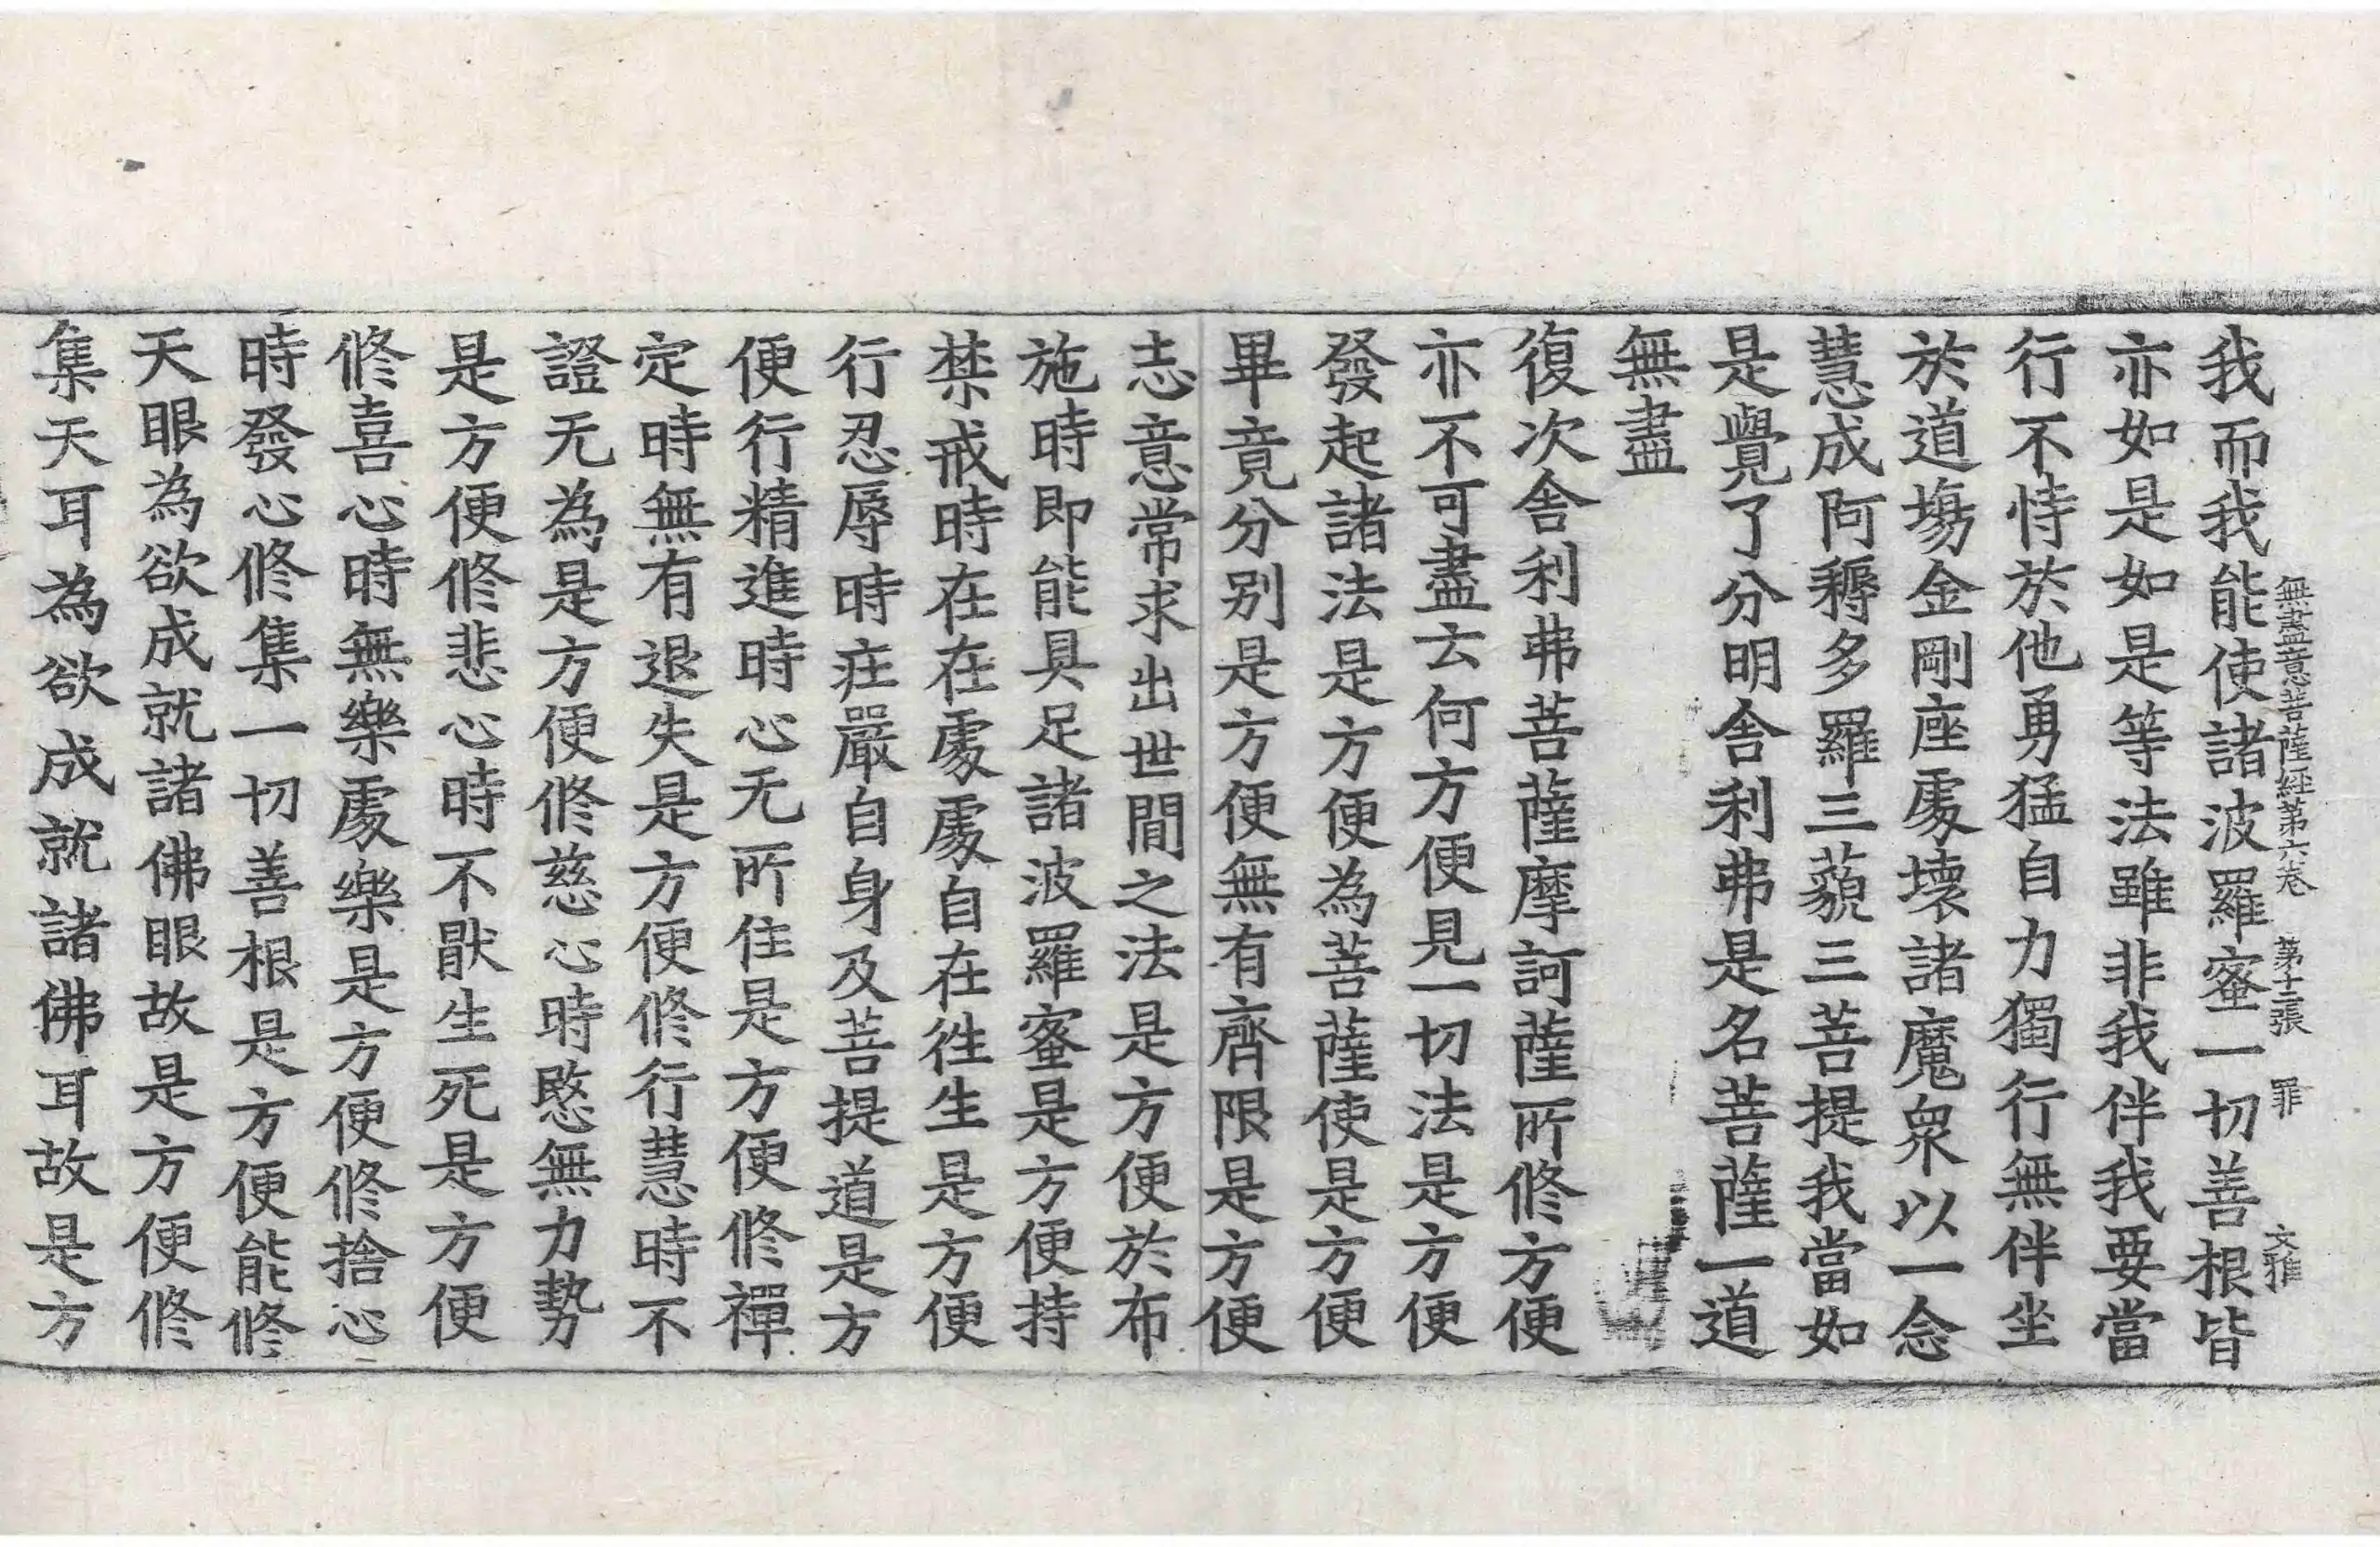 無盡意菩薩経第六卷 第十二張 罪 文雅
我而我能使諸波羅蜜一切善根皆
亦如是如是等法雖非我伴我要當
行不恃於他勇猛自力獨行無伴坐
於道場金剛座處壞諸魔衆以一念
慧成阿耨多羅三藐三菩提我當如
是覺了分明舎利弗是名菩薩一道
無盡
復次舎利弗菩薩摩訶薩所修方便
亦不可盡云何方便見一切法是方便
發起諸法是方便為菩薩使是方便
畢竟分别是方便無有齊限是方便
志意常求出世間之法是方便於布
施時即能具足諸波羅蜜是方便持
禁戒時在在處處自在徃生是方便
行忍辱時庄嚴自身及菩提道是方
便行精進時心无所住是方便修禪
定時無有退失是方便修行慧時不
證无為是方便修慈心時愍無力勢
是方便修悲心時不猒生死是方便
修喜心時無樂處樂是方便修捨心
時發心修集一切善根是方便能修
天眼為欲成就諸佛眼故是方便修
集天耳為欲成就諸佛耳故是方